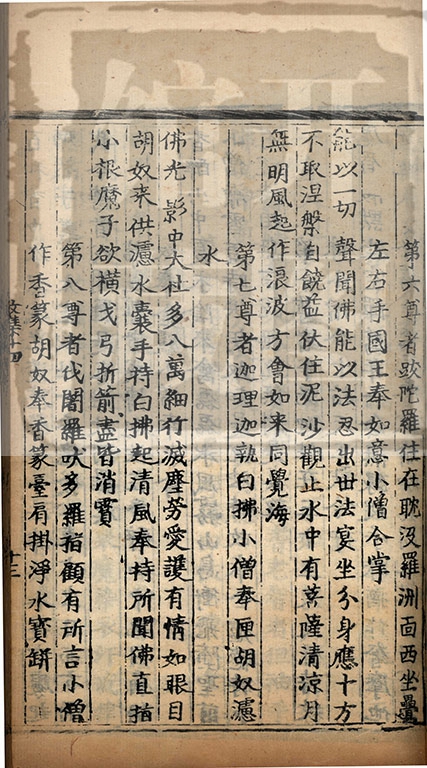 第六尊者跋陀羅住在耽没羅洲面西坐疊
左右手國王奉如意小僧合掌
能以一切聲聞佛能以法忍出世法宴坐分身應十方
不取涅槃自饒益伏住泥沙觀止水中有菩薩清凉月
無明風起作浪波方會如来同覺海
第七尊者迦理迦執白拂小僧奉匣胡奴濾
水
佛光影中大杜多八萬細行滅塵勞愛護有情如眼目
胡奴来供濾水囊手持白拂起清風奉持所聞佛直指
小根魔子欲横戈弓折箭盡皆消賓
第八尊者伐闍羅吠多羅指顧有所言小僧
作香篆胡奴奉香篆臺肩掛淨水寶缾
十三